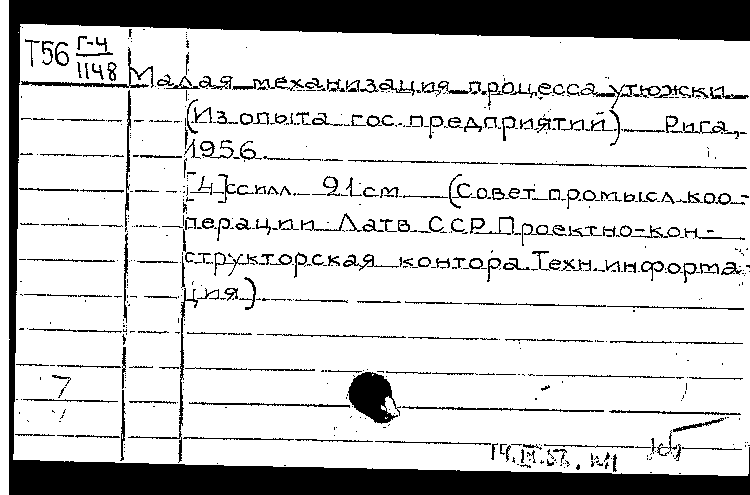 Т56 Г-4
1148
Малая механизация процесса утюжки.
(Из опыта гос.предприятий) Рига,
1956.
[4]с с илл. 21 см. (Совет промысл.коо-
перации Латв ССР. Проектно-кон-
структорская контора.Техн.информа-
ция).
7
14.III.57.